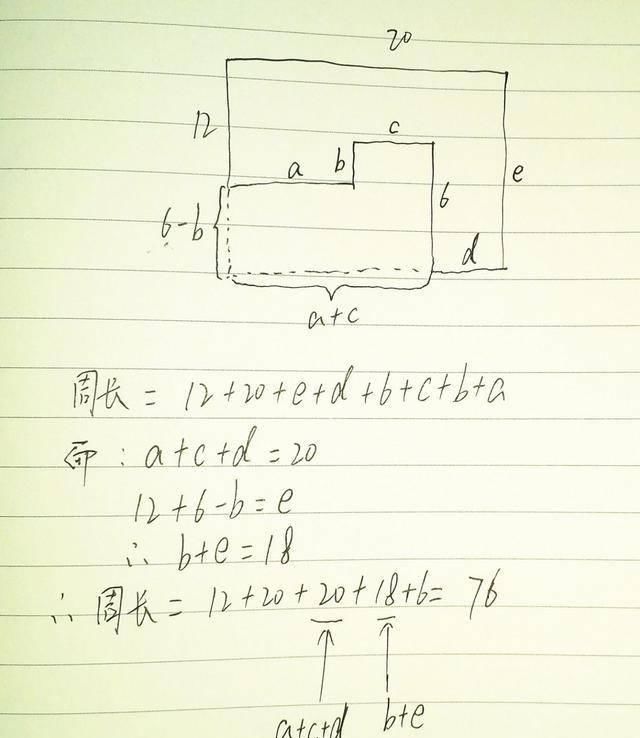 20
12
c
a
b
e
6
6-b
d
a+c
周长 = 12+20+e+d+6+c+b+a
而: a+c+d=20
12+6-b=e
∴ b+e=18
∴ 周长 = 12+20+20+18+6= 76
a+c+d
b+e